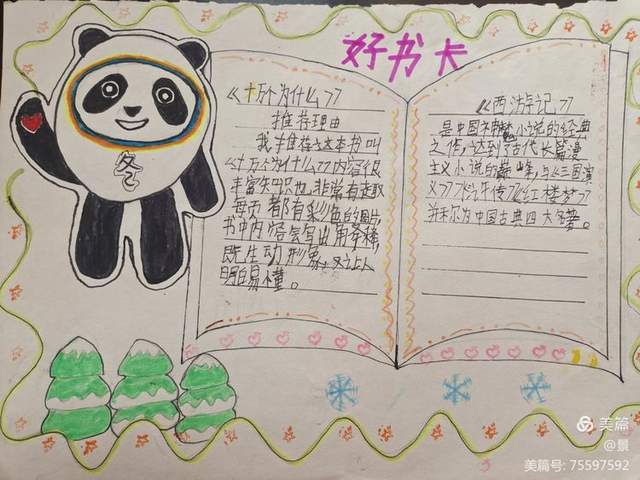 好书卡
《十万个为什么》
推荐理由
我推荐这本书叫
《十万个为什么》内容很
丰富知识也非常有趣
每页都有彩色的图片
书中内容
既生动形象，又让人
明白易懂。
《西游记》
是中国神魔小说的经典
之作，达到了古代长篇浪漫
主义小说的巅峰，与《三国演
义》《水浒传》《红楼梦》
并称为中国古典四大名著。
冬
美篇
@景
美篇号: 75597592